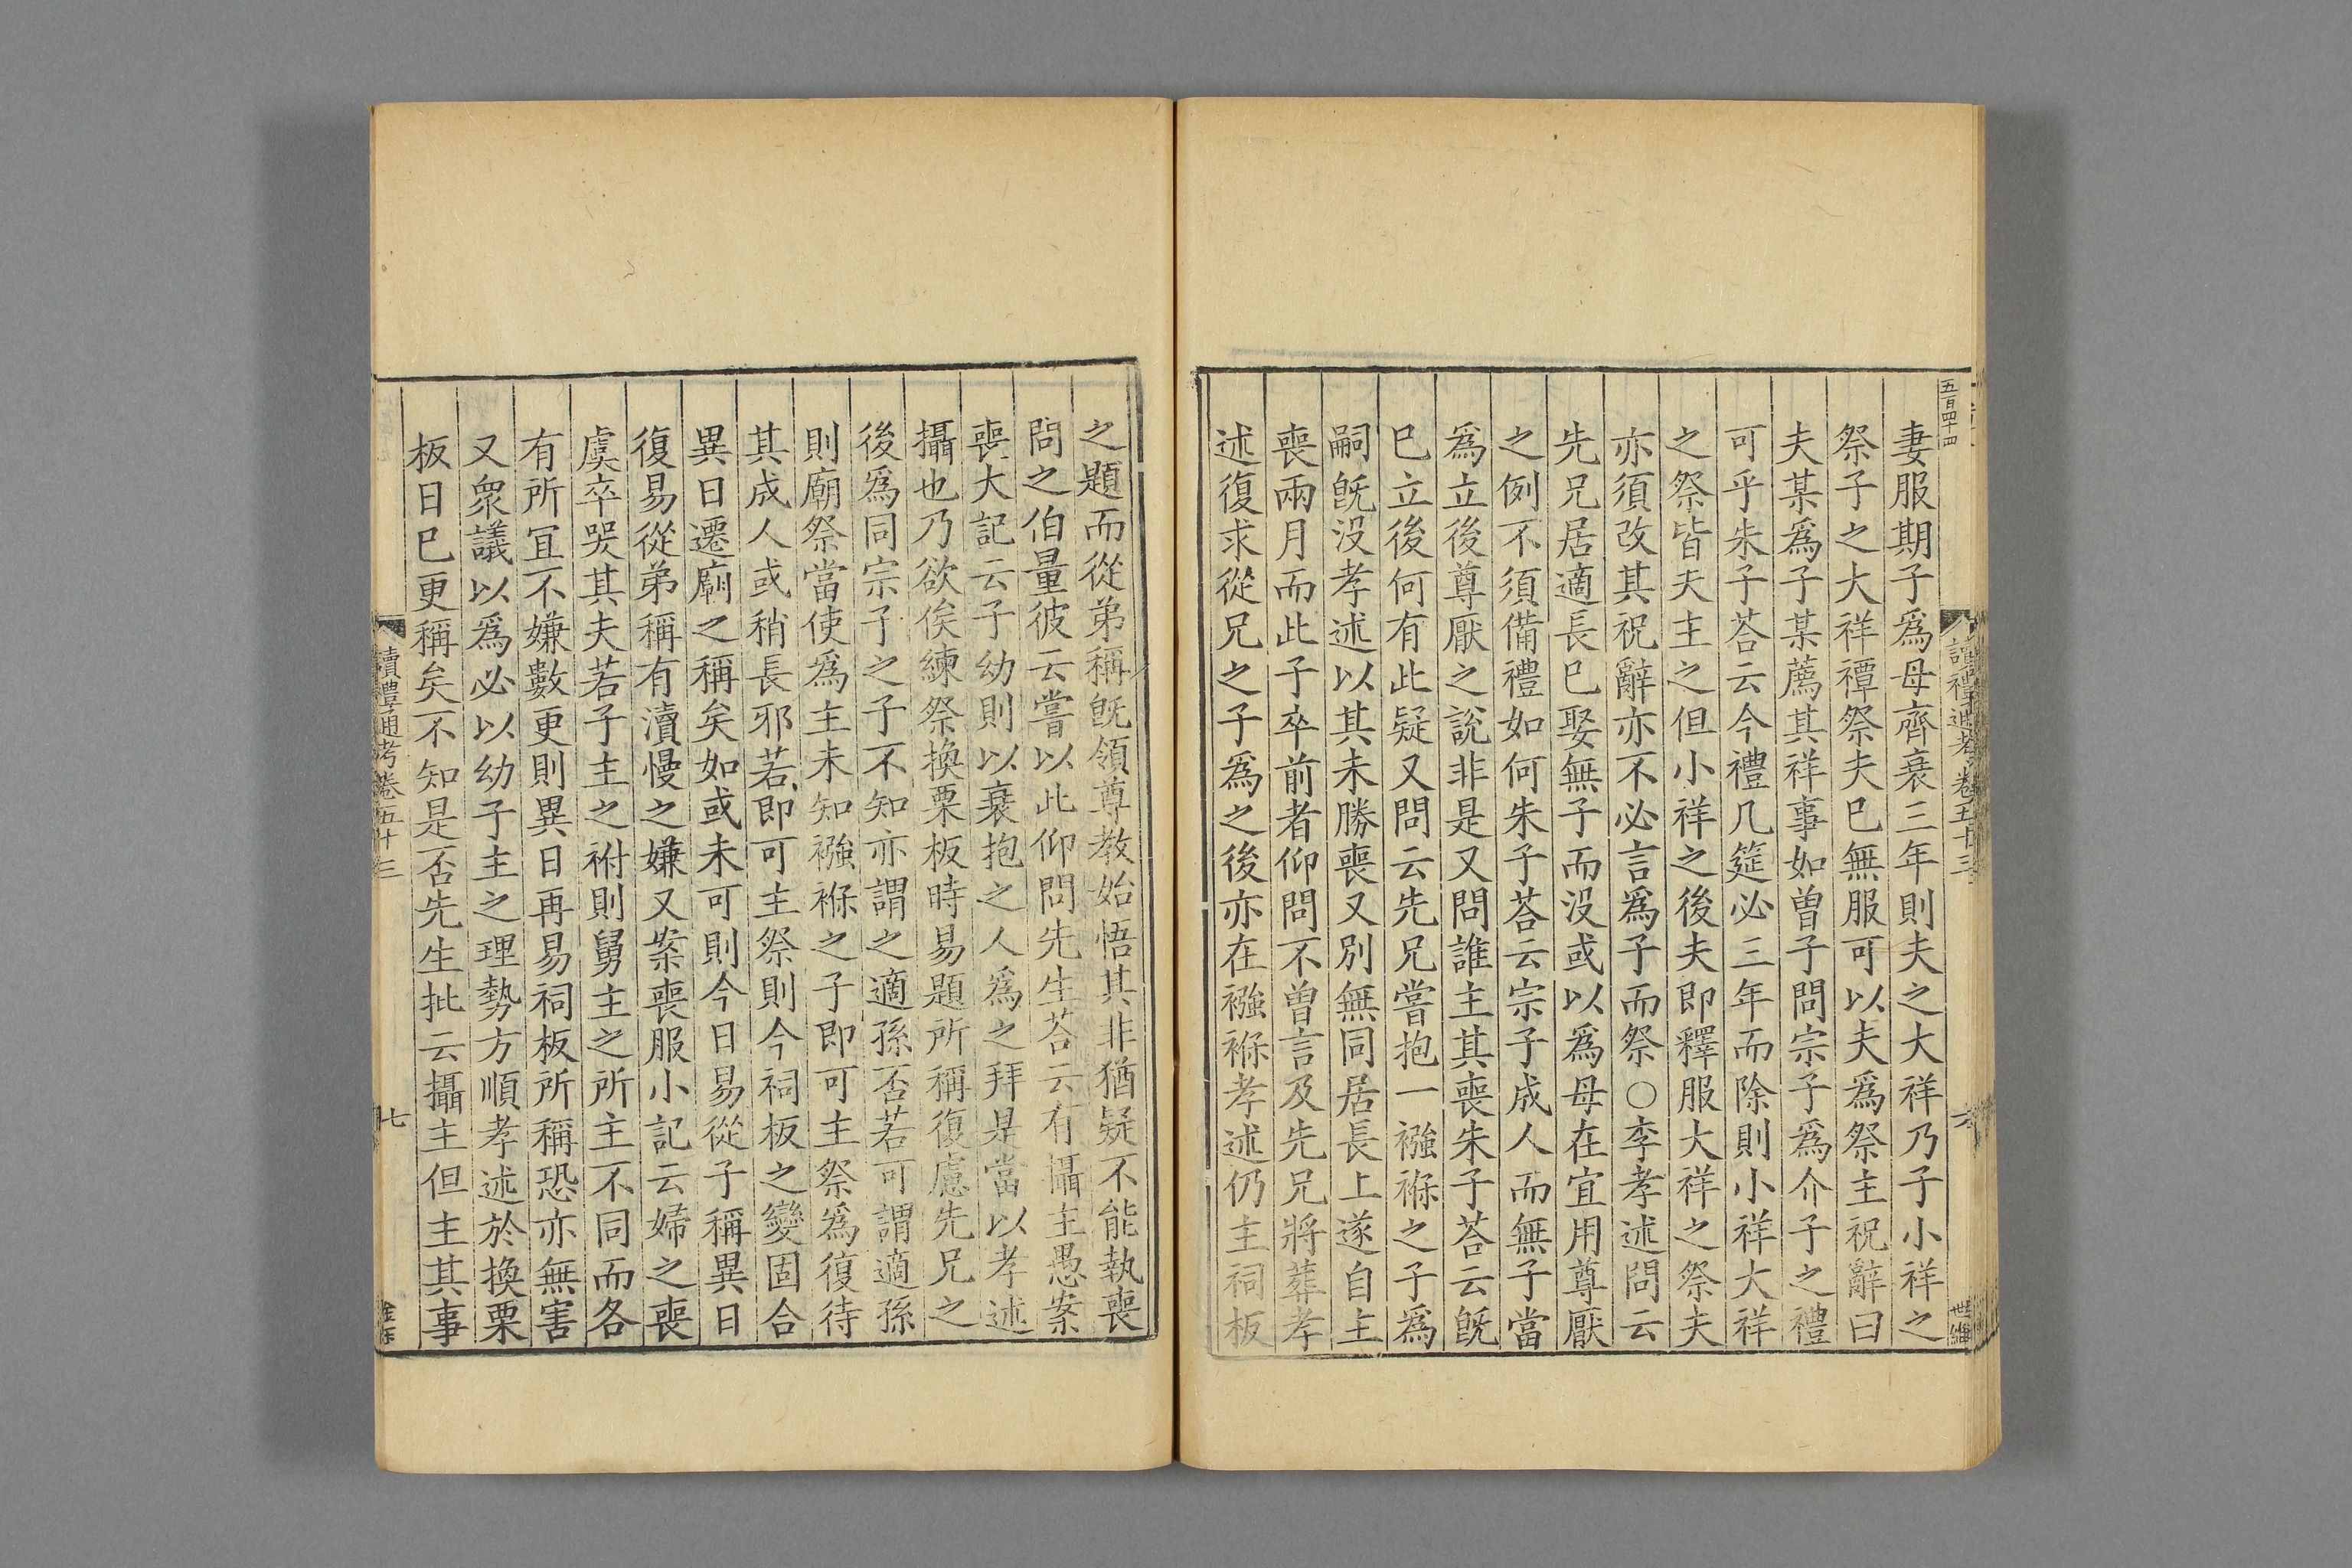 五百四十四
讀禮通考卷五十三
六
妻服期子爲母齊衰三年則夫之大祥乃子小祥之
祭子之大祥禫祭夫已無服可以夫爲祭主祝辭曰
夫某爲子某薦其祥事如曾子問宗子爲介子之禮
可乎朱子荅云今禮几筵必三年而除則小祥大祥
之祭皆夫主之但小祥之後夫即釋服大祥之祭夫
亦須改其祝辭亦不必言爲子而祭○李孝述問云
先兄居適長已娶無子而沒或以爲母在宜用尊厭
之例不須備禮如何朱子荅云宗子成人而無子當
爲立後尊厭之說非是又問誰主其喪朱子荅云旣
已立後何有此疑又問云先兄嘗抱一襁褓之子爲
嗣旣沒孝述以其未勝喪又別無同居長上遂自主
喪兩月而此子卒前者仰問不曾言及先兄將葬孝
述復求從兄之子爲之後亦在襁褓孝述仍主祠板
之題而從弟稱旣領尊教始悟其非猶疑不能執喪
問之伯量彼云嘗以此仰問先生荅云有攝主愚案
喪大記云子幼則以衰抱之人爲之拜是當以孝述
攝也乃欲俟練祭換栗板時易題所稱復慮先兄之
後爲同宗子之子不知亦謂之適孫否若可謂適孫
則廟祭當使爲主未知襁褓之子即可主祭爲復待
其成人或稍長邪若即可主祭則今祠板之變固合
異日遷廟之稱矣如或未可則今日易從子稱異日
復易從弟稱有瀆慢之嫌又案喪服小記云婦之喪
虞卒哭其夫若子主之祔則舅主之所主不同而各
有所宜不嫌數更則異日再易祠板所稱恐亦無害
又衆議以爲必以幼子主之理勢方順孝述於換栗
板日已更稱矣不知是否先生批云攝主但主其事
讀禮通考卷五十三
七